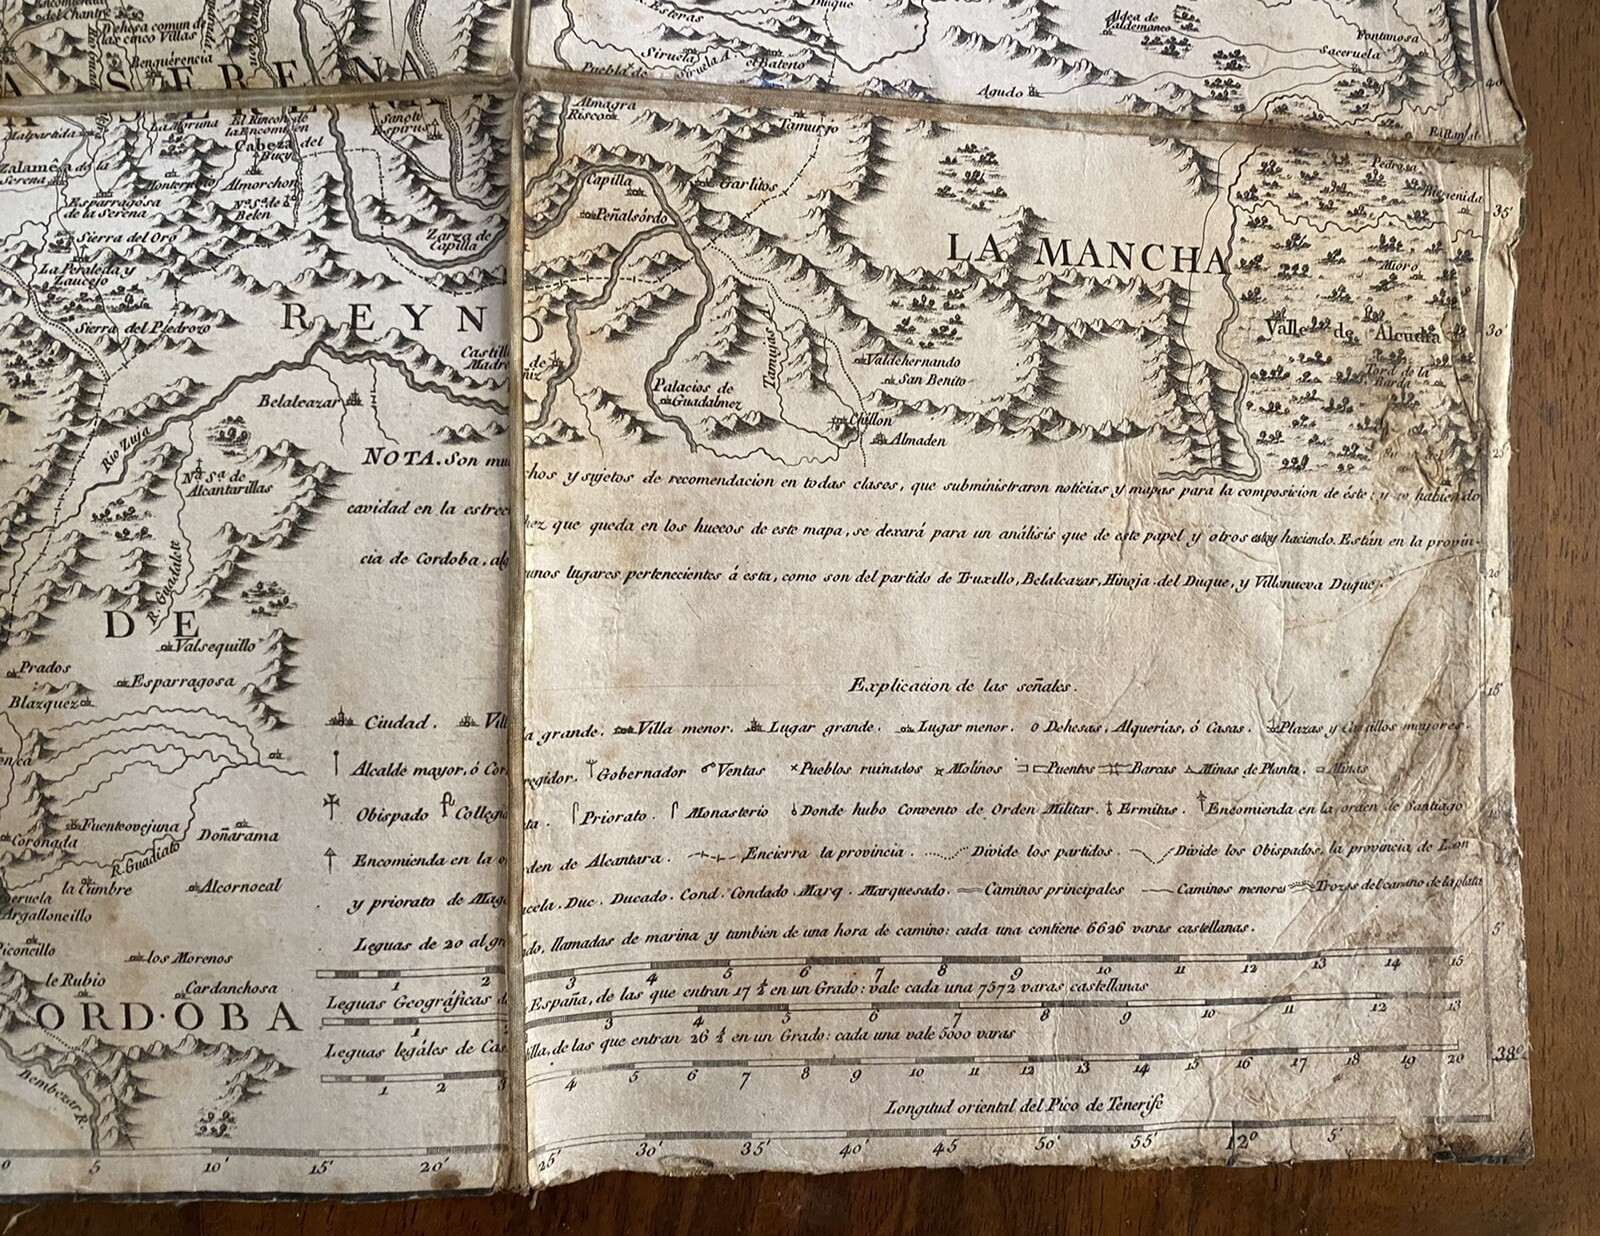 Dehesa comun de
las cinco Villas
Benquérencia
R. Esteras
Siruela
Siruela A.
el Bateno
Puebla de
Aldea de
Valdemanco
Fontanosa
Saceruela
Agudo
40
A SERENA
Malpartida
La Moruna
El Rincon de
la Encomien
Cabeza del
Buey
Sancti
Espiritus
Almagra
Risco
Tamurjo
Zalaméa de la
Serena
Almorchon
Esparragosa
de la Serena
Nª. Sª. de
Belen
Capilla
Garlitos
Peñalsórdo
Zarza de
Capilla
Pedrosa
Bienenida
35'
Sierra del Oro
La Peraleda y
Zaucejo
LA MANCHA
Sierra del Pedrozo
REYNO
Valle de Alcudia
30'
Valdehernando
San Benito
Tamujas A.
Palacios de
Guadalmez
Chillon
Almaden
Belalcazar
Rio Zuja
Nª. Sª. de
Alcantarillas
25'
NOTA. Son muchos y sujetos de recomendacion en todas clases, que subministraron noticias y mapas para la composicion de éste: y no habiendo
cavidad en la estrechez que queda en los huecos de este mapa, se dexará para un análisis que de este papel y otros estoy haciendo. Están en la provin-
cia de Cordoba, algunos lugares pertenecientes á esta, como son del partido de Truxillo, Belalcazar, Hinoja del Duque, y Villanueva Duque.
20'
R. Guadalete
DE
Valsequillo
Prados
Esparragosa
Blazquez
15'
Explicacion de las señales.
Ciudad. Villa grande. Villa menor. Lugar grande. Lugar menor. Dehesas, Alquerías, ó Casas. Plazas y Castillos mayores.
Alcalde mayor, ó Corregidor. Gobernador Ventas Pueblos ruinados Molinos Puentes Barcas Minas de Planta. Minas
Obispado Collegiata. Priorato. Monasterio Donde hubo Convento de Orden Militar. Ermitas. Encomienda en la orden de Santiago
Encomienda en la orden de Alcantara. Encierra la provincia. Divide los partidos. Divide los Obispados, la provincia de Leon
y priorato de Magacela. Duc. Ducado. Cond. Condado. Marq. Marquesado. Caminos principales Caminos menores Trozos del camino de la plata
Fuenteovejuna
Doñarama
Coronada
R. Guadiato
la Cumbre
Alcornocal
Argalloncillo
Piconcillo
los Morenos
le Rubio
Cardanchosa
CORDOBA
Bembezar R.
5'
Leguas de 20 al grado, llamadas de marina y tambien de una hora de camino: cada una contiene 6626 varas castellanas.
1 2 3 4 5 6 7 8 9 10 11 12 13 14 15
Leguas Geográficas de España, de las que entran 17 ½ en un Grado: vale cada una 7572 varas castellanas
1 3 4 5 6 7 8 9 10 11 12 13
Leguas legáles de Castilla, de las que entran 26 ½ en un Grado: cada una vale 5000 varas
1 2 3 4 5 6 7 8 9 10 11 12 13 14 15 16 17 18 19 20
38º
Longitud oriental del Pico de Tenerife
5 10' 15' 20' 25' 30' 35' 40' 45' 50' 55' 12º 5'